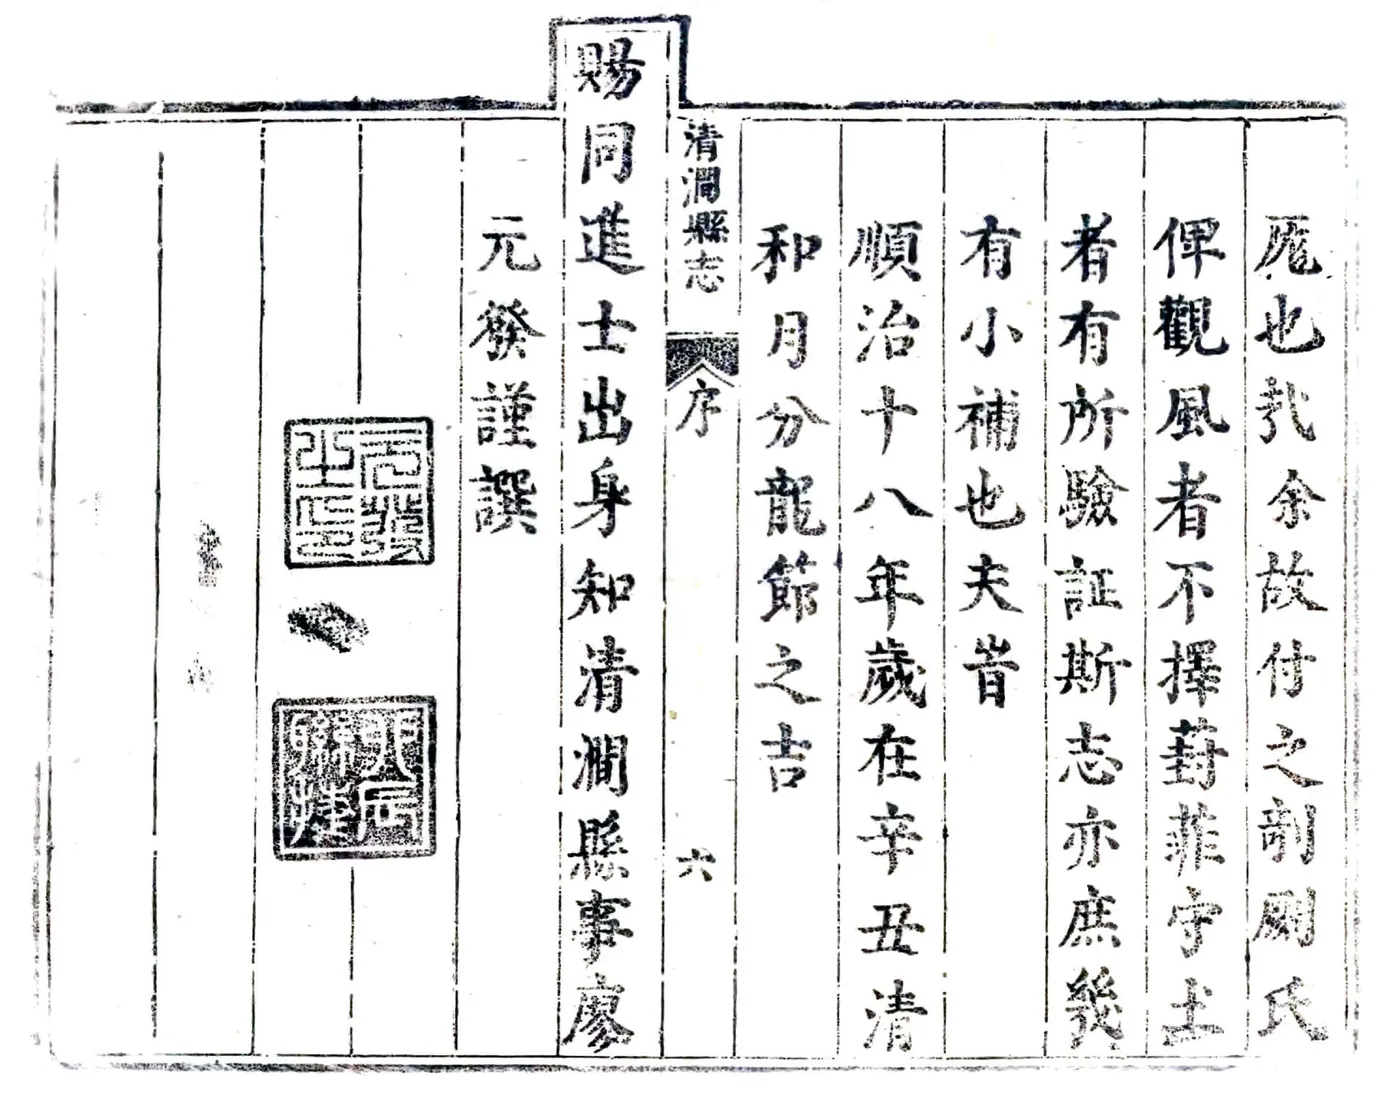 厖也哉余故付之剞劂氏
俾觀風者不擇葑菲守土
者有所驗証斯志亦庶幾
有小補也夫旹
順治十八年歲在辛丑清
和月分龍節之吉
清澗縣志
序
六
賜同進士出身知清澗縣事廖
元發謹譔
元發之印
聯捷